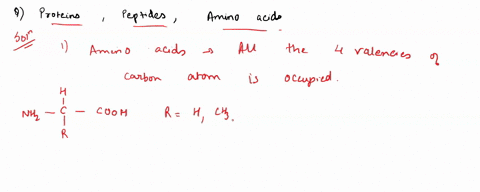 Q) Proteins, Peptides, Amino acids.
Solⁿ
1) Amino acids → All the 4 valencies of
carbon atom is occupied.
H
NH₂ — C — COOH R = H, CH₃.
R